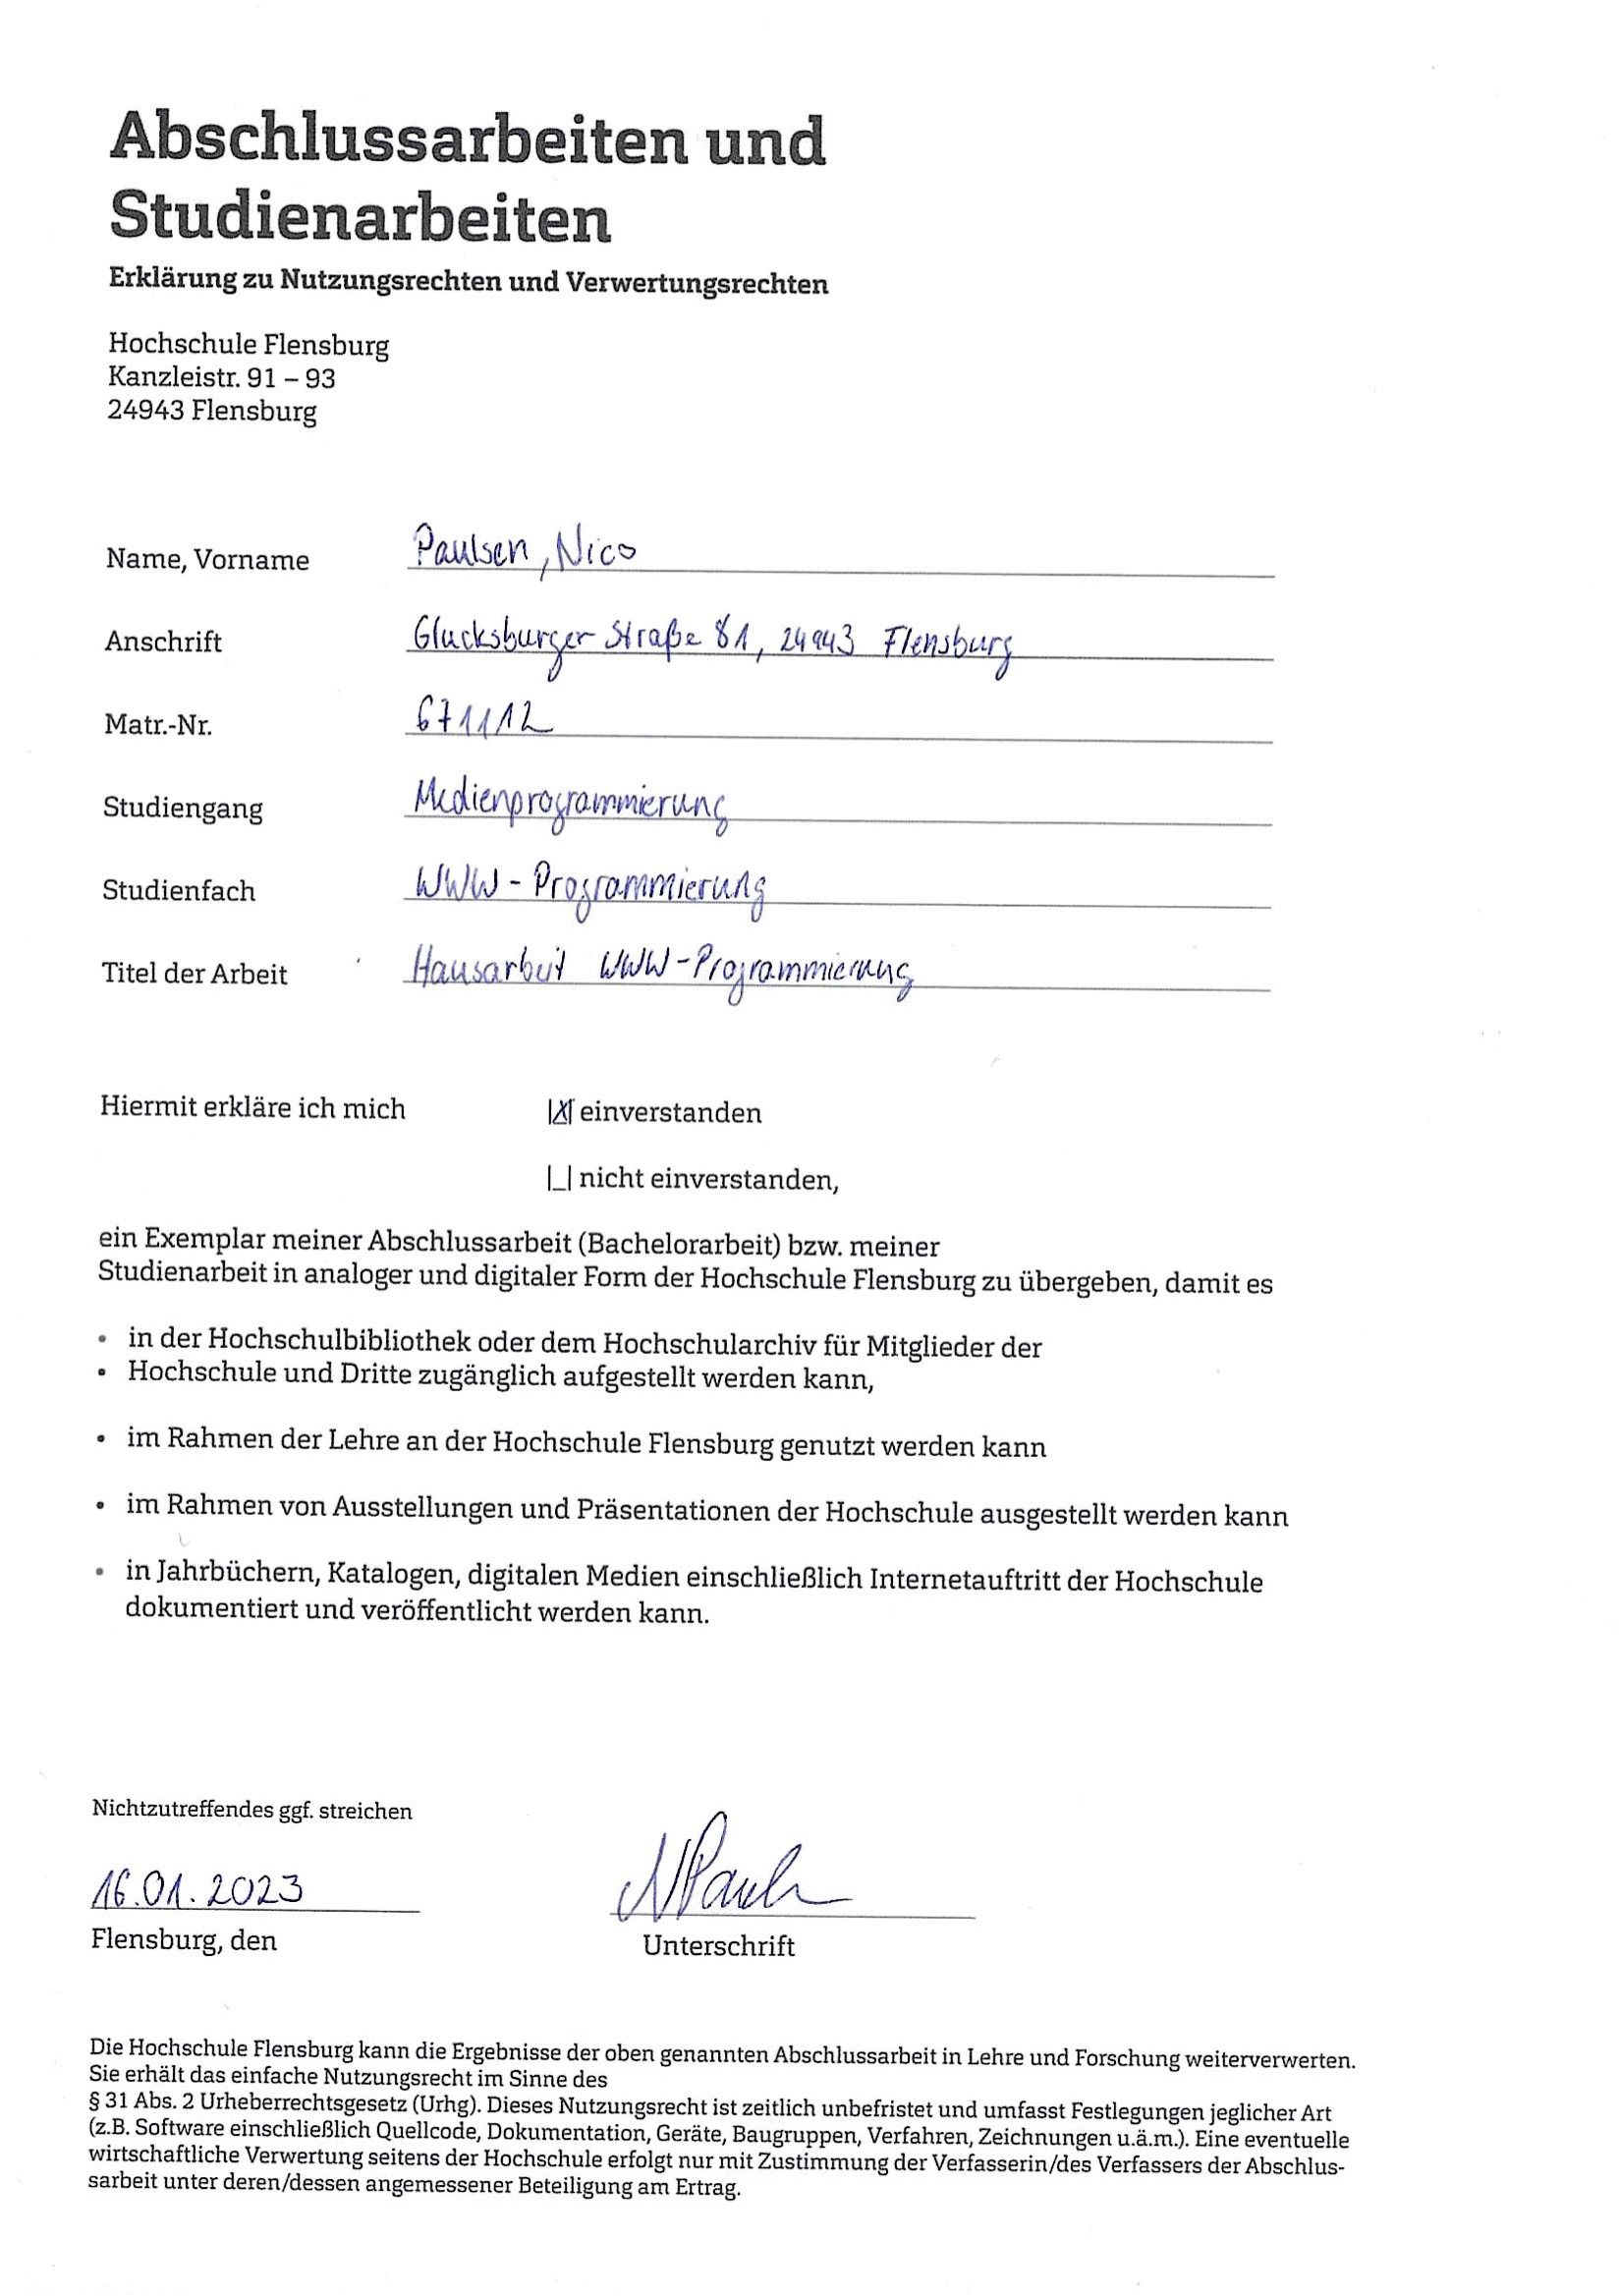 Abschlussarbeiten und
Studienarbeiten
Erklärung zu Nutzungsrechten und Verwertungsrechten
Hochschule Flensburg
Kanzleistr. 91 – 93
24943 Flensburg
Name, Vorname Paulsen, Nico
Anschrift Glucksburger Straße 81, 24943 Flensburg
Matr.-Nr. 671112
Studiengang Medienprogrammierung
Studienfach WWW - Programmierung
Titel der Arbeit Hausarbeit WWW-Programmierung
Hiermit erkläre ich mich |X| einverstanden
|_| nicht einverstanden,
ein Exemplar meiner Abschlussarbeit (Bachelorarbeit) bzw. meiner
Studienarbeit in analoger und digitaler Form der Hochschule Flensburg zu übergeben, damit es
• in der Hochschulbibliothek oder dem Hochschularchiv für Mitglieder der
• Hochschule und Dritte zugänglich aufgestellt werden kann,
• im Rahmen der Lehre an der Hochschule Flensburg genutzt werden kann
• im Rahmen von Ausstellungen und Präsentationen der Hochschule ausgestellt werden kann
• in Jahrbüchern, Katalogen, digitalen Medien einschließlich Internetauftritt der Hochschule
dokumentiert und veröffentlicht werden kann.
Nichtzutreffendes ggf. streichen
16.01.2023
Flensburg, den Unterschrift
Die Hochschule Flensburg kann die Ergebnisse der oben genannten Abschlussarbeit in Lehre und Forschung weiterverwerten.
Sie erhält das einfache Nutzungsrecht im Sinne des
§ 31 Abs. 2 Urheberrechtsgesetz (Urhg). Dieses Nutzungsrecht ist zeitlich unbefristet und umfasst Festlegungen jeglicher Art
(z.B. Software einschließlich Quellcode, Dokumentation, Geräte, Baugruppen, Verfahren, Zeichnungen u.ä.m.). Eine eventuelle
wirtschaftliche Verwertung seitens der Hochschule erfolgt nur mit Zustimmung der Verfasserin/des Verfassers der Abschlus-
sarbeit unter deren/dessen angemessener Beteiligung am Ertrag.